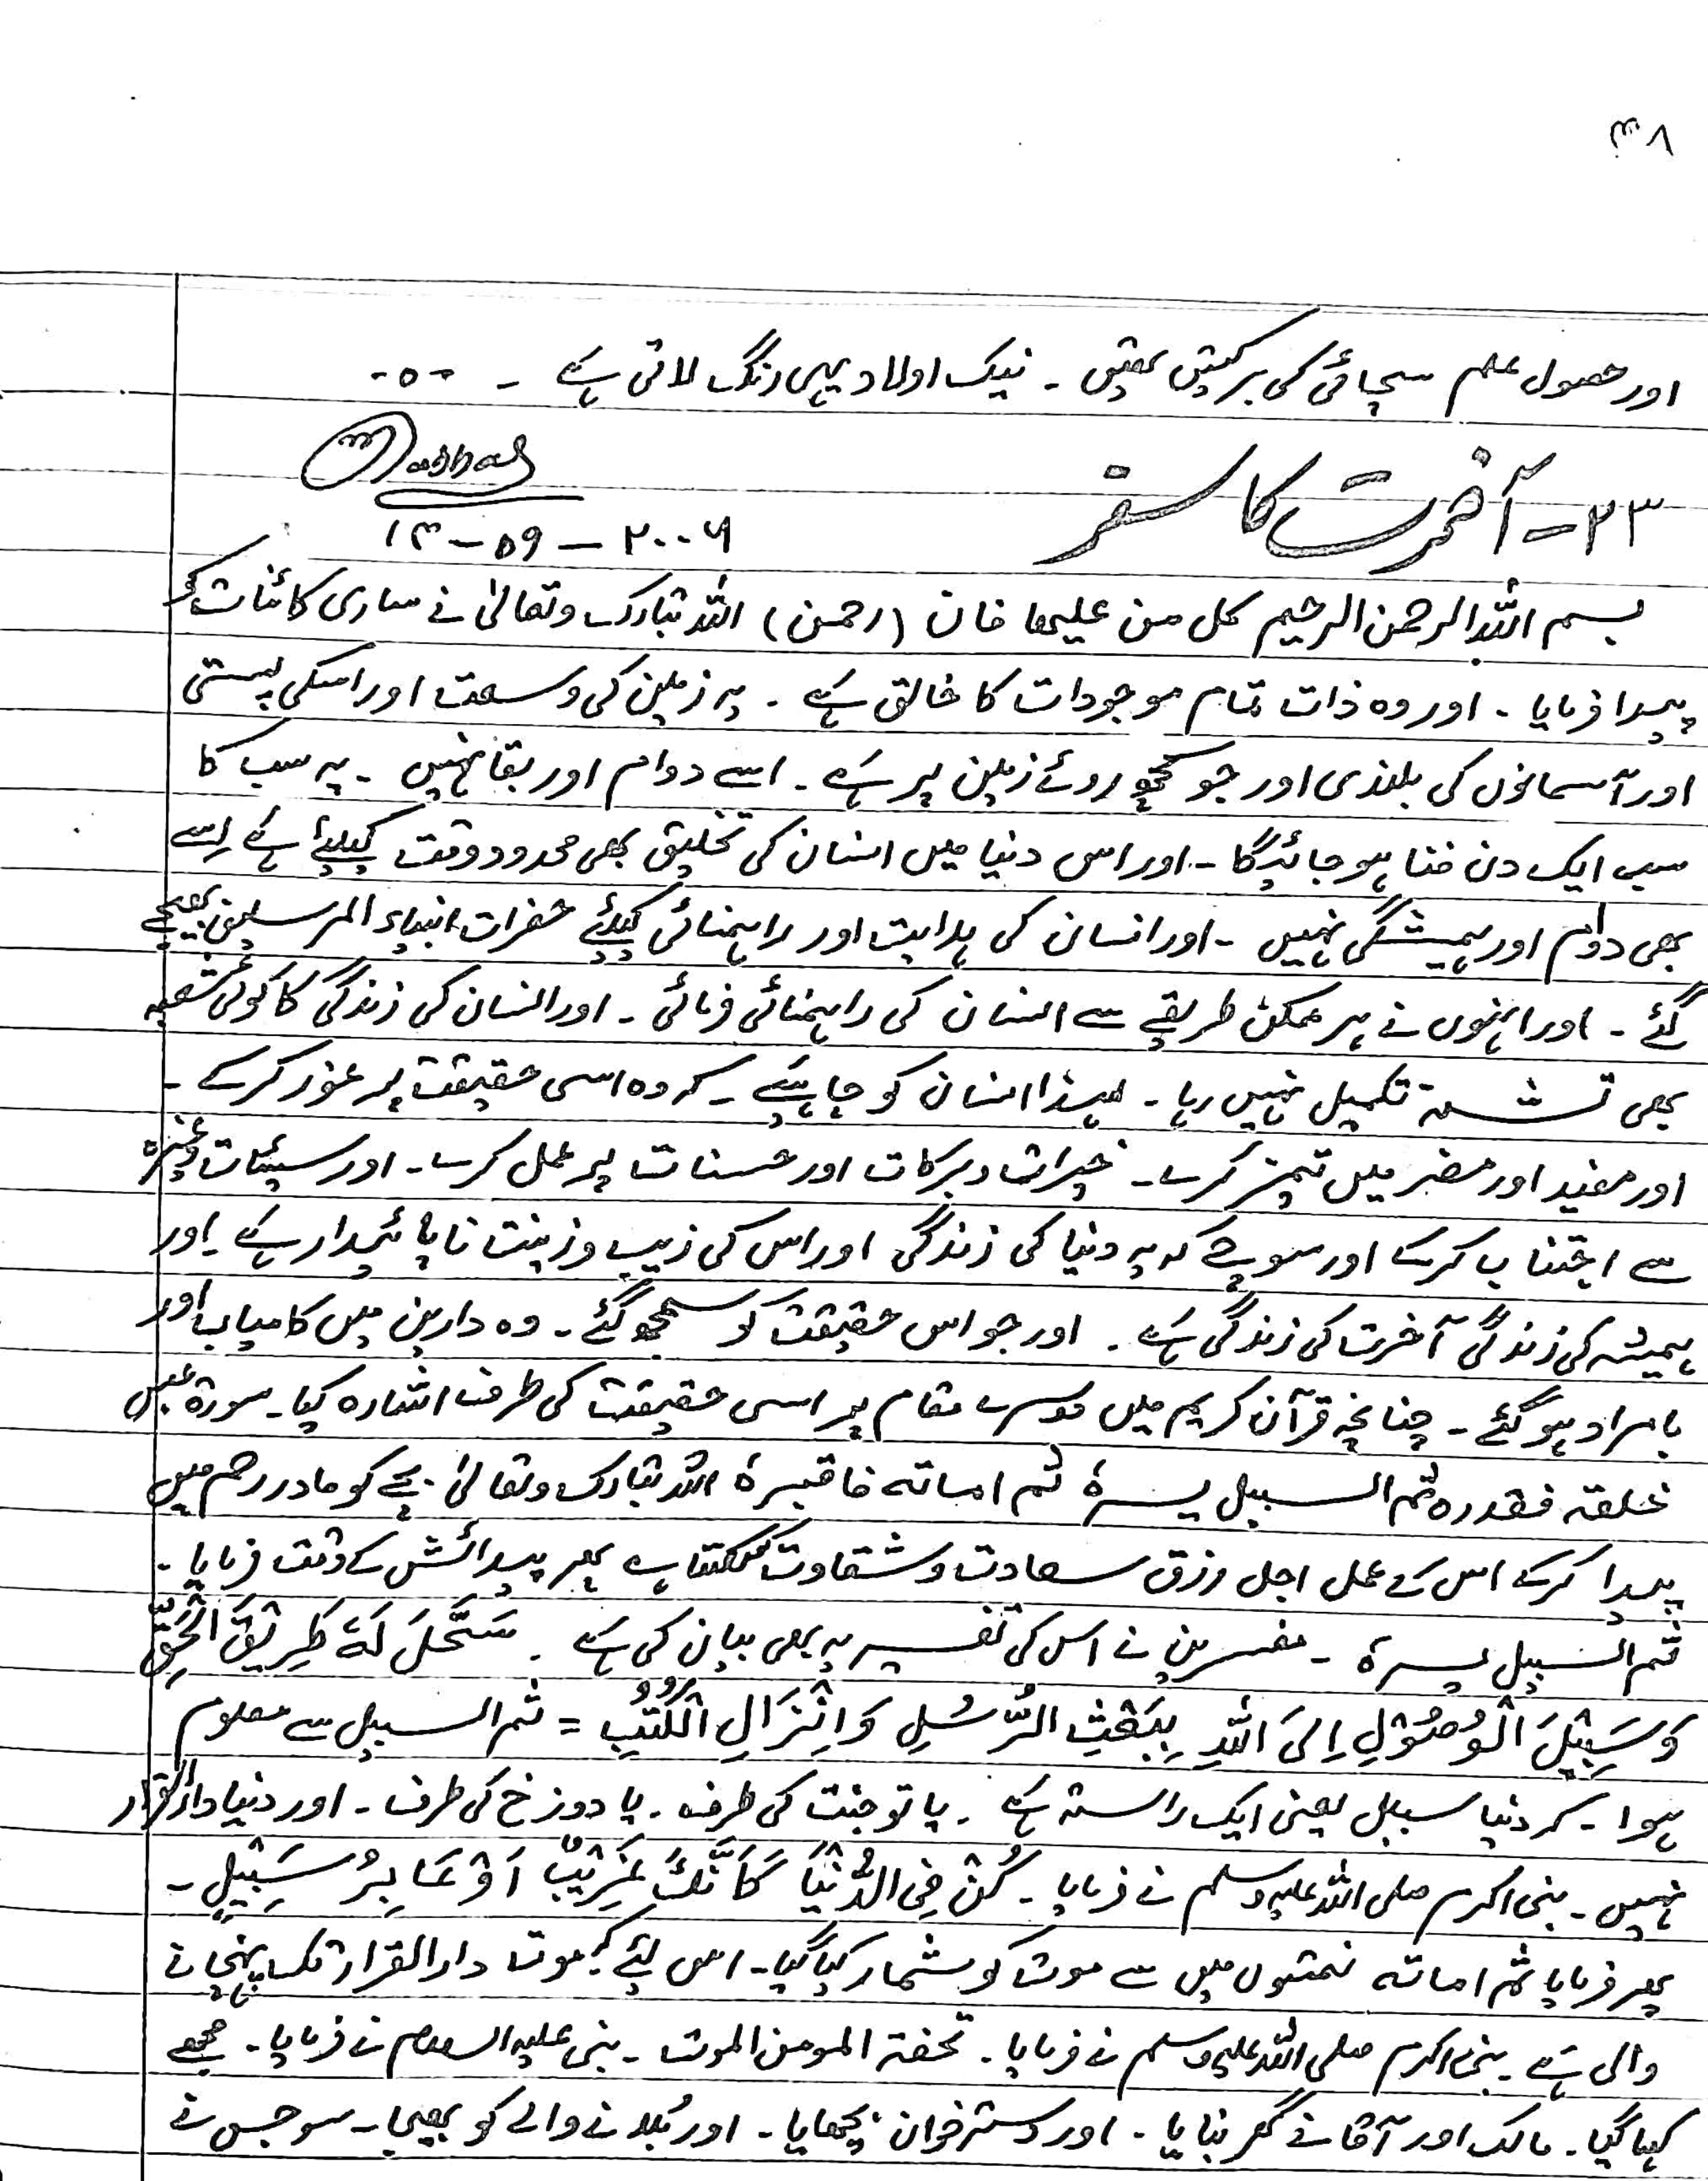 ۳۸
اور حصول علم سچائی کی برکتیں تھیں ۔ نیک اولاد یہی رنگ لاتی ہے ۔ -۰-
۲۳ – آخرت کا سفر
۱۳ – ۰۹ – ۲۰۰۶
بسم اللہ الرحمن الرحیم کل من علیھا فان (رحمن) اللہ تبارک وتعالیٰ نے ساری کائنات کو
پیدا فرمایا ۔ اور وہ ذات تمام موجودات کا خالق ہے ۔ یہ زمین کی وسعت اور اسکی پستی
اور آسمانوں کی بلندی اور جو کچھ روئے زمین پر ہے ۔ اسے دوام اور بقا نہیں ۔ یہ سب کا
سب ایک دن فنا ہو جائیگا ۔ اور اس دنیا میں انسان کی تخلیق بھی محدود وقت کیلئے ہے اسے
بھی دوام اور ہمیشگی نہیں ۔ اور انسان کی ہدایت اور راہنمائی کیلئے حضرات انبیاء المرسلین بھیجے
گئے ۔ اور انہوں نے ہر ممکن طریقے سے انسان کی راہنمائی فرمائی ۔ اور انسان کی زندگی کا کوئی شعبہ
بھی تشنہ تکمیل نہیں رہا ۔ لہذا انسان کو چاہئے ۔ کہ وہ اسی حقیقت پر غور کرے ۔
اور مفید اور مضر میں تمیز کرے ۔ خیرات و برکات اور حسنات پر عمل کرے ۔ اور سیئات وغیرہ
سے اجتناب کرے اور سوچے کہ یہ دنیا کی زندگی اور اس کی زیب و زینت ناپائیدار ہے اور
ہمیشہ کی زندگی آخرت کی زندگی ہے ۔ اور جو اس حقیقت کو سمجھ گئے ۔ وہ دارین میں کامیاب اور
بامراد ہو گئے ۔ چنانچہ قرآن کریم میں دوسرے مقام پر اسی حقیقت کی طرف اشارہ کیا ۔ سورۃ عبس
خلقہ فقدرہ ثم السبیل یسرہ ثم اماتہ فاقبرہ اللہ تبارک وتعالیٰ بچے کو مادر رحم میں
پیدا کرکے اس کے عمل اجل رزق سعادت و شقاوت لکھتا ہے پھر پیدائش کے وقت فرمایا ۔
ثم السبیل یسرہ ۔ مفسرین نے اس کی تفسیر یہ بھی بیان کی ہے ۔ سَهَّلَ لَهٗ طَرِیْقَ الْحَقِّ
وَسَبِیْلَ الْوُصُوْلِ اِلیَ اللہِ بِبَعْثِ الرُّسُلِ وَاِنْزَالِ الْکُتُبِ = ثم السبیل سے معلوم
ہوا ۔ کہ دنیا سبیل یعنی ایک راستہ ہے ۔ یا تو جنت کی طرف ۔ یا دوزخ کی طرف ۔ اور دنیا دارالقرار
نہیں ۔ نبی اکرم صلی اللہ علیہ وسلم نے فرمایا ۔ کُنْ فِی الدُّنْیَا کَاَنَّکَ غَرِیْبٌ اَوْ عَابِرُ سَبِیْلٍ ۔
پھر فرمایا ثم اماتہ نعمتوں میں سے موت کو شمار کیا گیا ۔ اس لئے کہ موت دارالقرار تک پہنچانے
والی ہے ۔ نبی اکرم صلی اللہ علیہ وسلم نے فرمایا ۔ تحفۃ المومن الموت ۔ نبی علیہ السلام نے فرمایا ۔ مجھے
کہا گیا ۔ مالک اور آقا نے گھر بنایا ۔ اور دسترخوان بچھایا ۔ اور بُلانے والے کو بھیجا ۔ سو جس نے